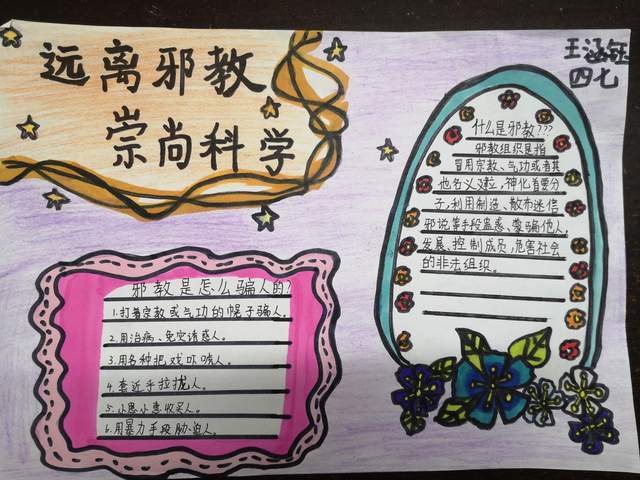 远离邪教
崇尚科学
王涵钰
四七
什么是邪教???
邪教组织是指
冒用宗教、气功或者其
他名义建立,神化首要分
子,利用制造、散布迷信
邪说等手段蛊惑、蒙骗他人,
发展、控制成员,危害社会
的非法组织。
邪教是怎么骗人的?
1.打着宗教或气功的幌子骗人。
2.用治病、免灾诱惑人。
3.用各种把戏吓唬人。
4.套近乎拉拢人。
5.小恩小惠收买人。
6.用暴力手段胁迫人。